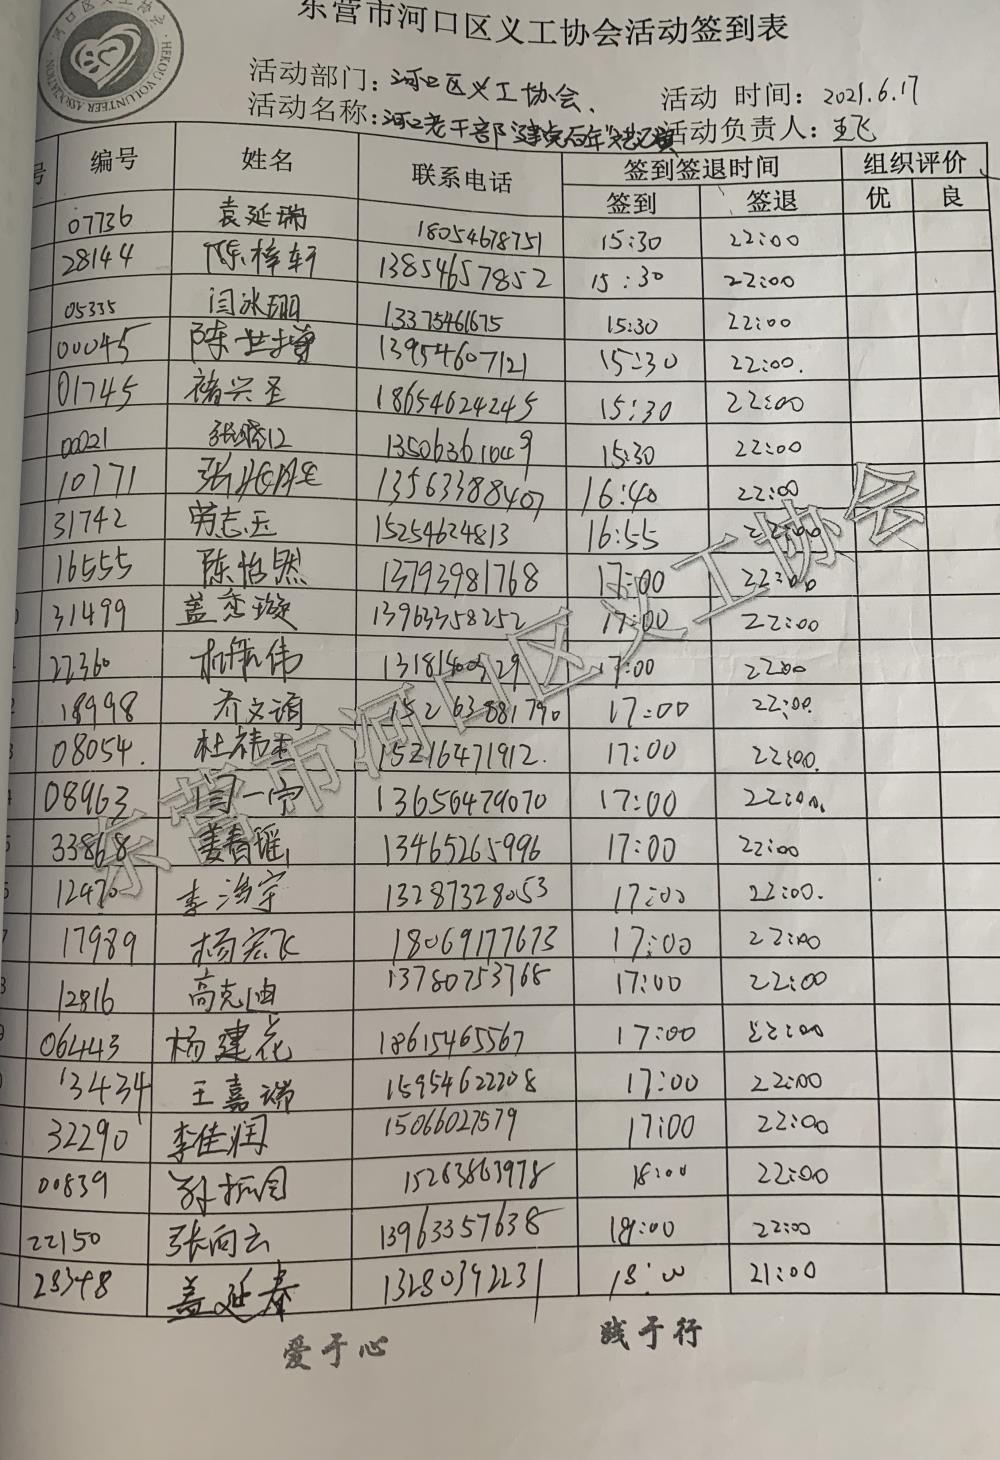 东营市河口区义工协会活动签到表
HEKOU VOLUNTEER ASSOCIATION
活动部门：河口区义工协会、 活动 时间：2021.6.17
活动名称：河口老干部"建党百年" 活动负责人：王飞
号 编号 姓名 联系电话 签到签退时间 组织评价
签到 签退 优 良
07736 袁延瑞 18054678751 15:30 22:00
28144 陈梓轩 13854657852 15:30 22:00
05335 闫冰珊 13375461675 15:30 22:00
00045 陈世增 13954607121 15:30 22:00.
01745 褚兴圣 18654624245 15:30 22:00
00021 13506361049 15:30 22:00
10771 13563388407 16:40 22:00
31742 劳志玉 15254624813 16:55 22:00
16555 陈怡然 13793981768 17:00 22:00
31499 盖秀璇 13963358252 17:00 22:00
22360 17:00 22:00
18998 乔文 15263881790 17:00 22:00
08054. 杜祎 15216471912. 17:00 22:00.
08963 闫一宁 13656479070 17:00 22:00.
33868 姜春瑶 13465265996 17:00 22:00
12470 李海宇 13287328053 17:00 22:00.
17989 杨宏飞 18069177673 17:00 22:00
12816 高克迪 13780753768 17:00 22:00
06443 杨建花 18615465567 17:00 22:00
13434 王嘉瑞 15954622208 17:00 22:00
32290 李佳润 15066027579 17:00 22:00
00839 15263863978 18:00 22:00
22150 张向云 13963357638 18:00 22:00
28348 盖延春 13280392231 18:00 21:00
东营市河口区义工协会
爱于心 践于行